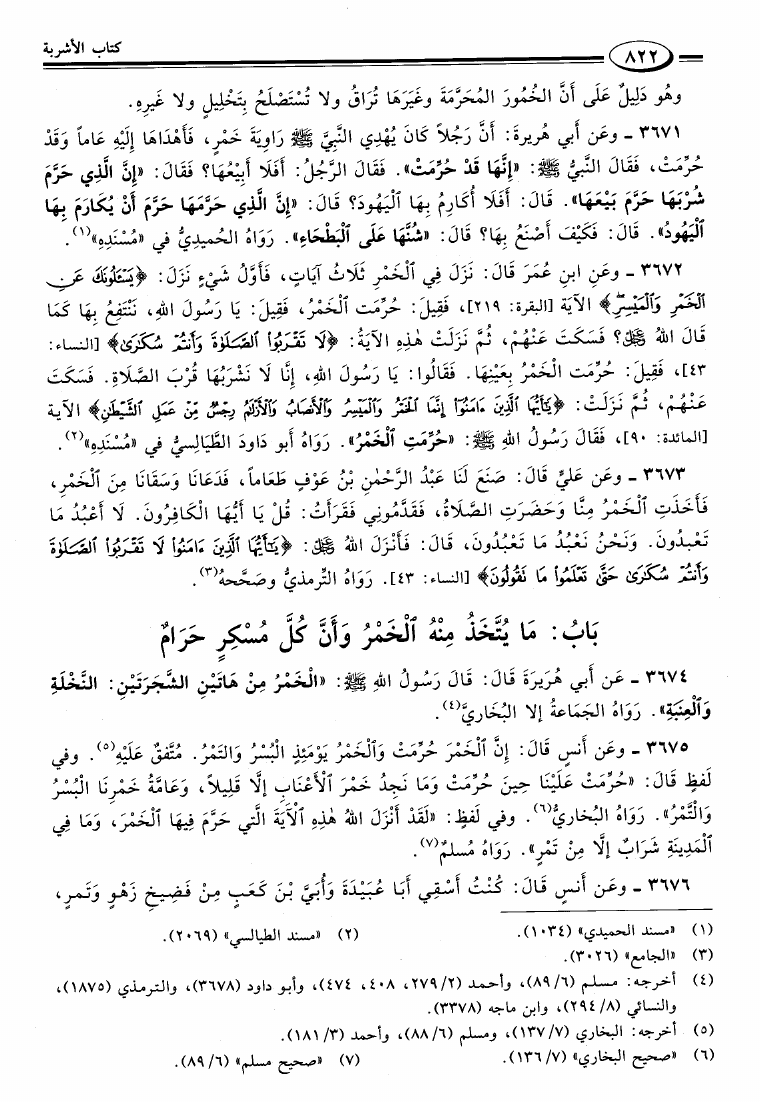 كتاب الأشربة
٨٢٢
وهُو دَلِيلٌ عَلَى أنَّ الخُمُورَ المُحَرَّمَةَ وغَيْرَهَا تُرَاقُ ولا تُسْتَصْلَحُ بِتَخْلِيلٍ ولا غَيرِهِ.
٣٦٧١ ـ وعَن أبي هُريرةَ: أنَّ رَجُلاً كَانَ يُهْدِي النَّبِيَّ ﷺ رَاوِيَةَ خَمْرٍ، فَأَهْدَاهَا إلَيْهِ عَاماً وَقَدْ
حُرِّمَتْ، فَقَالَ النَّبيُّ ﷺ: «إنَّهَا قَدْ حُرِّمَتْ». فَقَالَ الرَّجُلُ: أفَلَا أبيْعُهَا؟ فَقَالَ: «إنَّ الَّذِي حَرَّمَ
شُرْبَهَا حَرَّمَ بَيْعَهَا». قَالَ: أفَلَا أُكَارِمُ بِهَا الْيَهُودَ؟ قَالَ: «إنَّ الَّذِي حَرَّمَهَا حَرَّمَ أَنْ يُكَارَمَ بِهَا
الْيَهُودُ». قَالَ: فَكَيْفَ أصْنَعُ بِهَا؟ قَالَ: «شُنَّهَا عَلَى الْبَطْحَاءِ». رَوَاهُ الحُميدِيُّ في «مُسْنَدِهِ»(١).
٣٦٧٢ ـ وعَنِ ابنِ عُمَرَ قَالَ: نَزَلَ فِي الْخَمْرِ ثَلَاثُ آيَاتٍ، فَأوَّلُ شَيْءٍ نَزَلَ: ﴿يَسْـَٔلُونَكَ عَنِ
الْخَمْرِ وَالْمَيْسِرِ﴾ الآيَةَ [البقرة: ٢١٩]، فَقِيلَ: حُرِّمَتِ الْخَمْرُ، فَقِيلَ: يَا رَسُولَ اللهِ، نَنْتَفِعُ بِهَا كَمَا
قَالَ اللهُ ﷻ؟ فَسَكَتَ عَنْهُمْ، ثُمَّ نَزَلَتْ هٰذِهِ الآيَةُ: ﴿لَا تَقْرَبُوا۟ ٱلصَّلَوٰةَ وَأَنتُمْ سُكَـٰرَىٰ﴾ [النساء:
٤٣]، فَقِيلَ: حُرِّمَتِ الْخَمْرُ بِعَيْنِهَا. فَقَالُوا: يَا رَسُولَ اللهِ، إنَّا لَا نَشْرَبُهَا قُرْبَ الصَّلَاةِ. فَسَكَتَ
عَنْهُمْ، ثُمَّ نَزَلَتْ: ﴿يَـٰٓأَيُّهَا ٱلَّذِينَ ءَامَنُوٓا۟ إِنَّمَا ٱلْخَمْرُ وَٱلْمَيْسِرُ وَٱلْأَنصَابُ وَٱلْأَزْلَـٰمُ رِجْسٌ مِّنْ عَمَلِ ٱلشَّيْطَـٰنِ﴾ الآية
[المائدة: ٩٠]، فَقَالَ رَسُولُ اللهِ ﷺ: «حُرِّمَتِ الْخَمْرُ». رَوَاهُ أبو دَاودَ الطَّيَالِسيُّ في «مُسْنَدِهِ»(٢).
٣٦٧٣ ـ وعَن عَلِيٍّ قَالَ: صَنَعَ لَنَا عَبْدُ الرَّحْمٰنِ بْنُ عَوْفٍ طَعَاماً، فَدَعَانَا وَسَقَانَا مِنَ الْخَمْرِ،
فَأخَذَتِ الْخَمْرُ مِنَّا وَحَضَرَتِ الصَّلَاةُ، فَقَدَّمُونِي فَقَرَأتُ: قُلْ يَا أيُّهَا الْكَافِرُونَ. لَا أعْبُدُ مَا
تَعْبِدُونَ. وَنَحْنُ نَعْبُدُ مَا تَعْبُدُونَ، قَالَ: فَأنْزَلَ اللهُ ﷻ: ﴿يَـٰٓأَيُّهَا ٱلَّذِينَ ءَامَنُوا۟ لَا تَقْرَبُوا۟ ٱلصَّلَوٰةَ
وَأَنتُمْ سُكَـٰرَىٰ حَتَّىٰ تَعْلَمُوا۟ مَا تَقُولُونَ﴾ [النساء: ٤٣]. رَوَاهُ التِّرمذيُّ وصَحَّحهُ(٣).
بَابُ: مَا يُتَّخَذُ مِنْهُ الْخَمْرُ وَأَنَّ كُلَّ مُسْكِرٍ حَرَامٌ
٣٦٧٤ ـ عَن أبي هُرَيرَةَ قَالَ: قَالَ رَسُولُ اللهِ ﷺ: «الْخَمْرُ مِنْ هَاتَيْنِ الشَّجَرَتَيْنِ: النَّخْلَةِ
وَالْعِنَبَةِ». رَوَاهُ الجَمَاعةُ إلا البُخَاريَّ(٤).
٣٦٧٥ ـ وعَن أنسٍ قَالَ: إنَّ الْخَمْرَ حُرِّمَتْ وَالْخَمْرُ يَوْمَئِذٍ الْبُسْرُ وَالتَمْرُ. مُتَّفقٌ عَلَيْهِ(٥). وفي
لَفظٍ قَالَ: «حُرِّمَتْ عَلَيْنَا حِينَ حُرِّمَتْ وَمَا نَجِدُ خَمْرَ الْأَعْنَابِ إلَّا قَلِيلاً، وَعَامَّةُ خَمْرِنَا الْبُسْرُ
وَالتَّمْرُ». رَوَاهُ البُخاريُّ(٦). وفي لَفظٍ: «لَقَدْ أنْزَلَ اللهُ هٰذِهِ الْآيَةَ الَّتي حَرَّمَ فِيهَا الْخَمْرَ، وَمَا فِي
الْمَدِينَةِ شَرَابٌ إلَّا مِنْ تَمْرٍ». رَوَاهُ مُسلمٌ(٧).
٣٦٧٦ ـ وعَن أنسٍ قَالَ: كُنْتُ أسْقِي أبَا عُبَيْدَةَ وَأُبَيَّ بْنَ كَعْبٍ مِنْ فَضِيخِ زَهْوٍ وَتَمرٍ،
(١) «مسند الحميدي» (١٠٣٤). (٢) «مسند الطيالسي» (٢٠٦٩).
(٣) «الجامع» (٣٠٢٦).
(٤) أخرجه: مسلم (٨٩/٦)، وأحمد (٢٧٩/٢، ٤٠٨، ٤٧٤)، وأبو داود (٣٦٧٨)، والترمذي (١٨٧٥)،
والنسائي (٢٩٤/٨)، وابن ماجه (٣٣٧٨).
(٥) أخرجه: البخاري (١٣٧/٧)، ومسلم (٨٨/٦)، وأحمد (١٨١/٣).
(٦) «صحيح البخاري» (١٣٦/٧). (٧) «صحيح مسلم» (٨٩/٦).